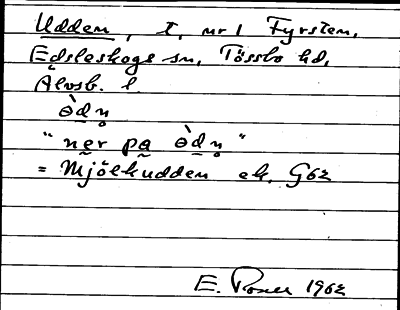 Udden, t. nr 1 Fyrsten,
Edsleskogs sn, Tössbo hd,
Älvsb. l
ə̀dn̥
"nər pa ə̀dn̥"
= Mjölkudden ek. G62
E. 1962